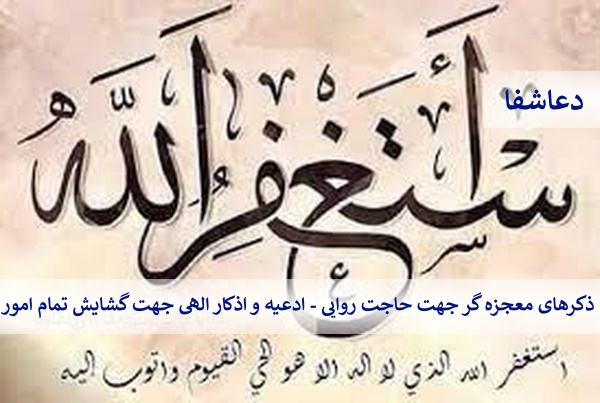 أستغفر الله
دعاشفا
ذکرهای معجزه گر جهت حاجت روایی - ادعیه و اذکار الهی جهت گشایش تمام امور
استغفر الله الذي لا اله الا هو الحي القيوم واتوب إليه